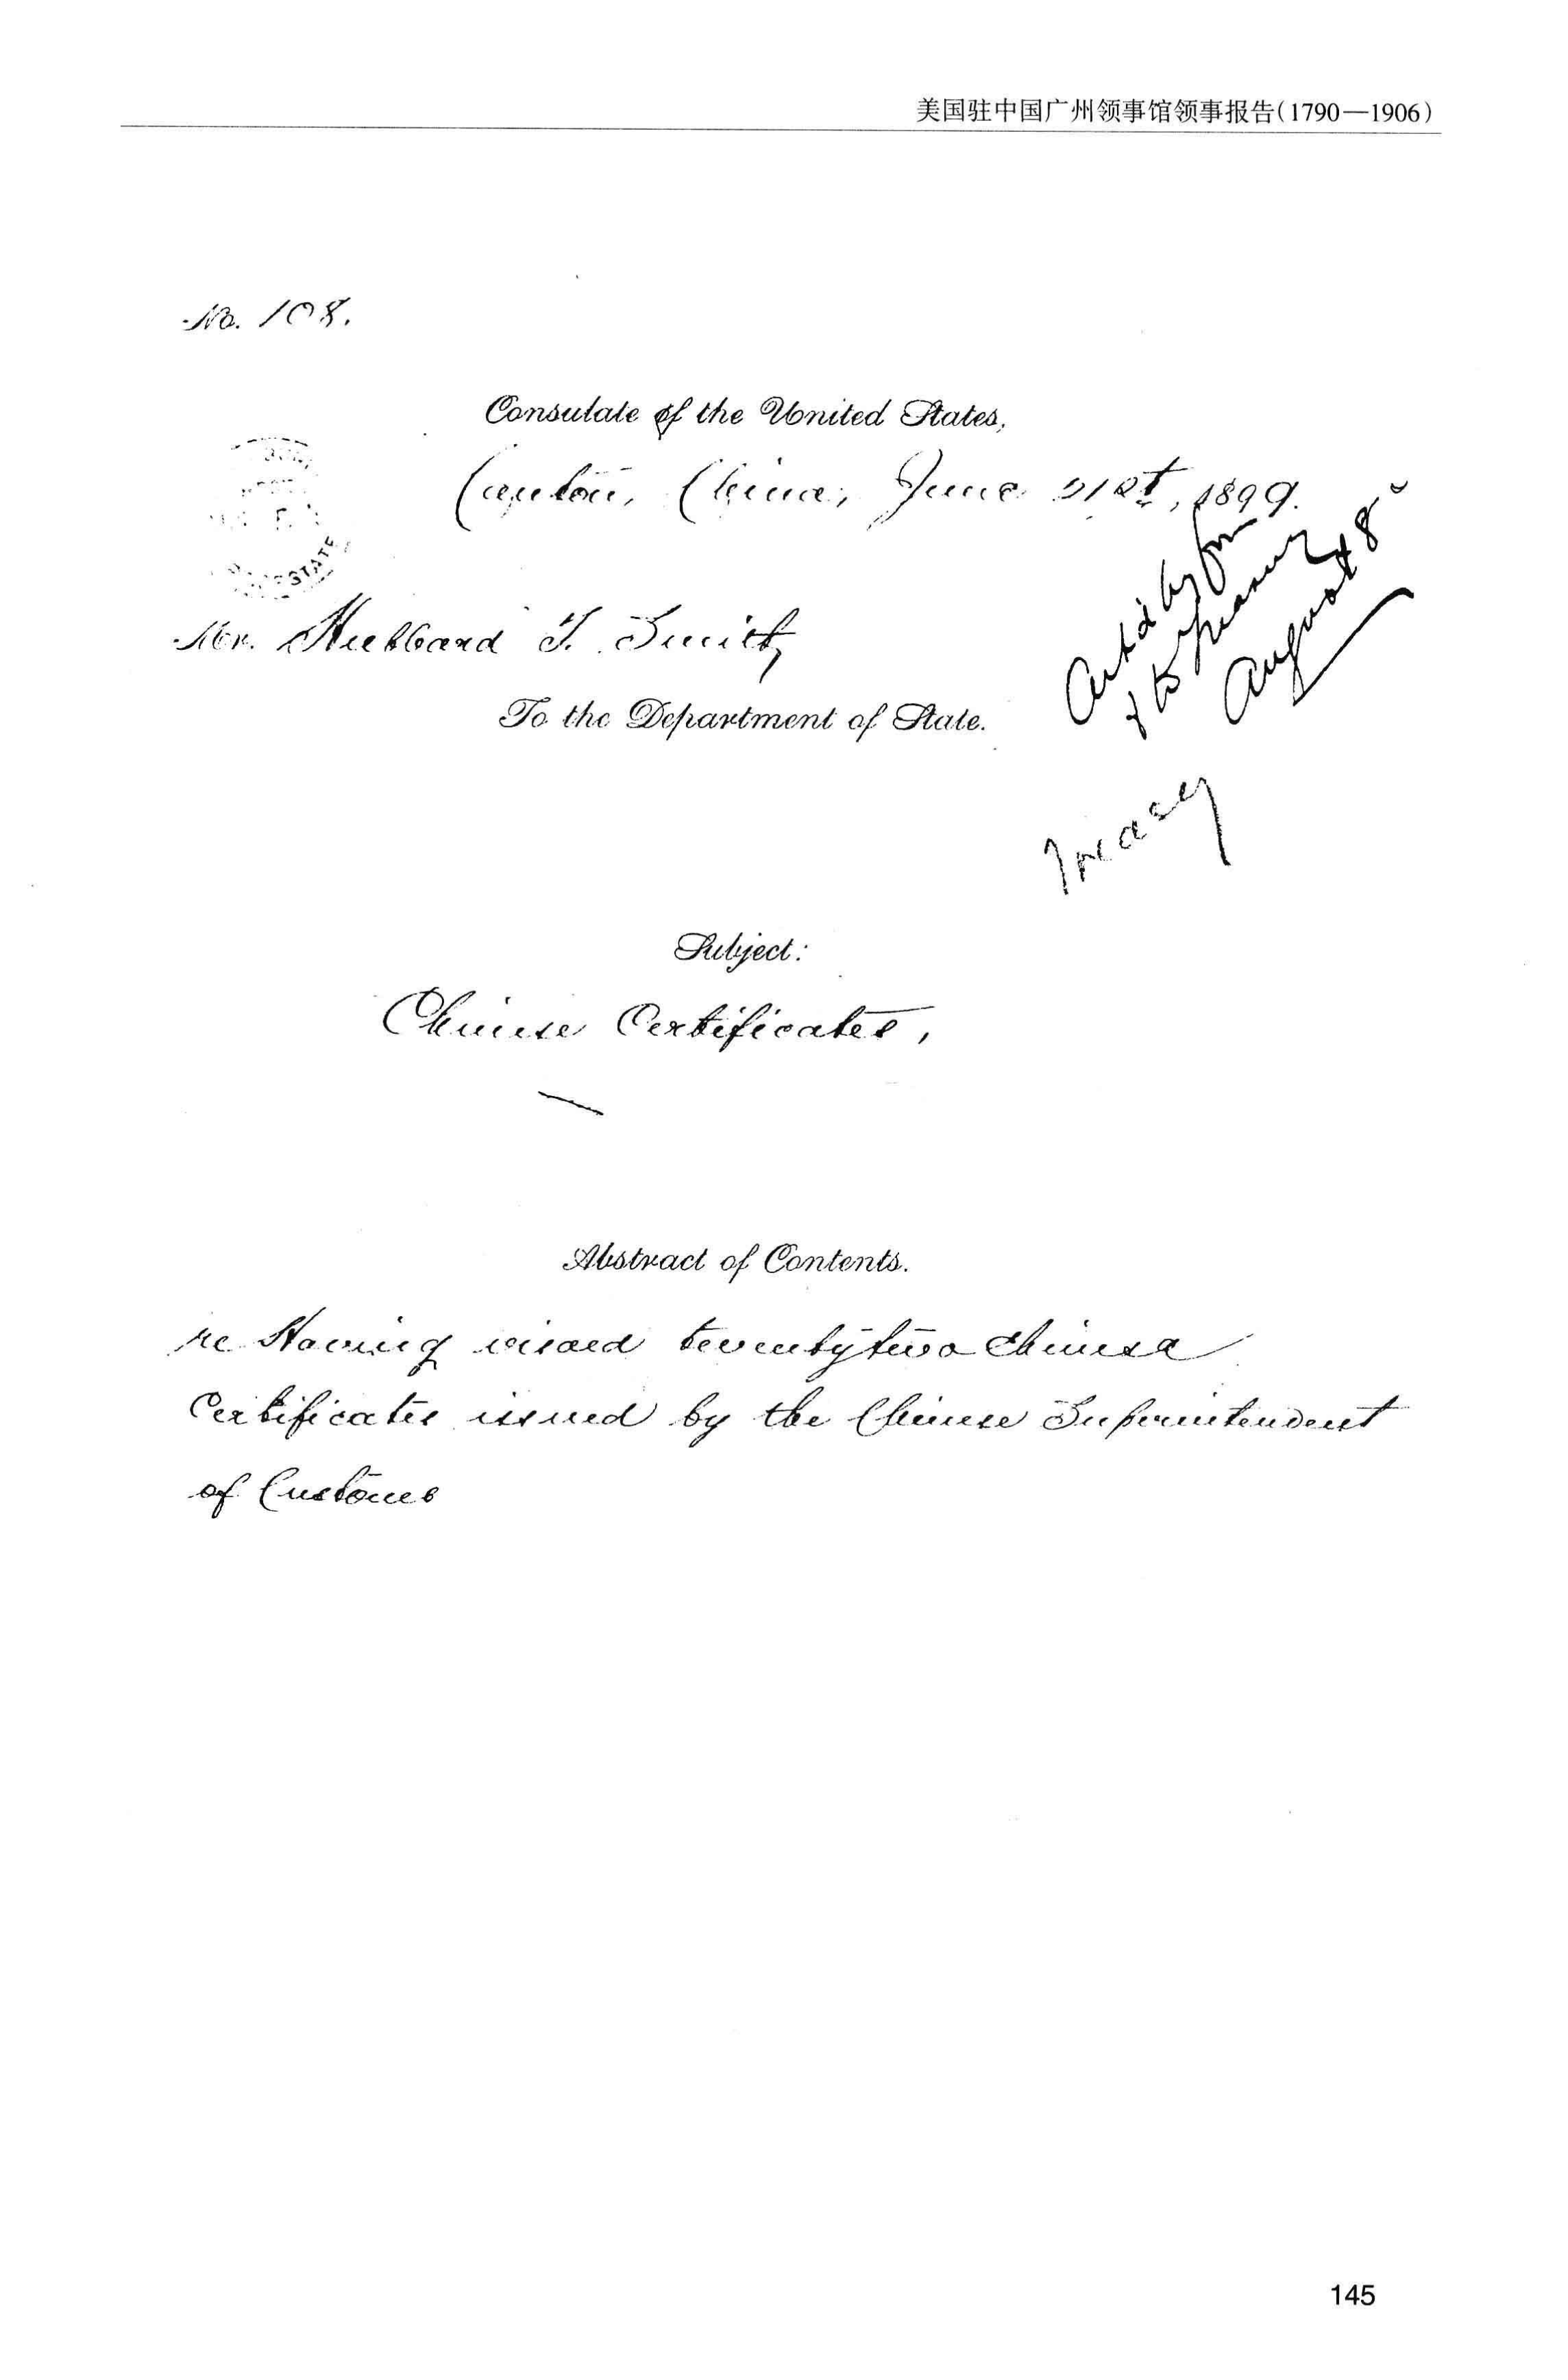 美国驻中国广州领事馆领事报告(1790—1906)
No. 108.
Consulate of the United States,
Canton, China, June 21st, 1899.
STATE
Mr. Hubbard T. Smith,
To the Department of State.
by
to Treasury
August 8
Subject:
Chinese Certificates,
Abstract of Contents.
re Having visaed twentytwo Chinese
Certificates issued by the Chinese Superintendent
of Customs
145